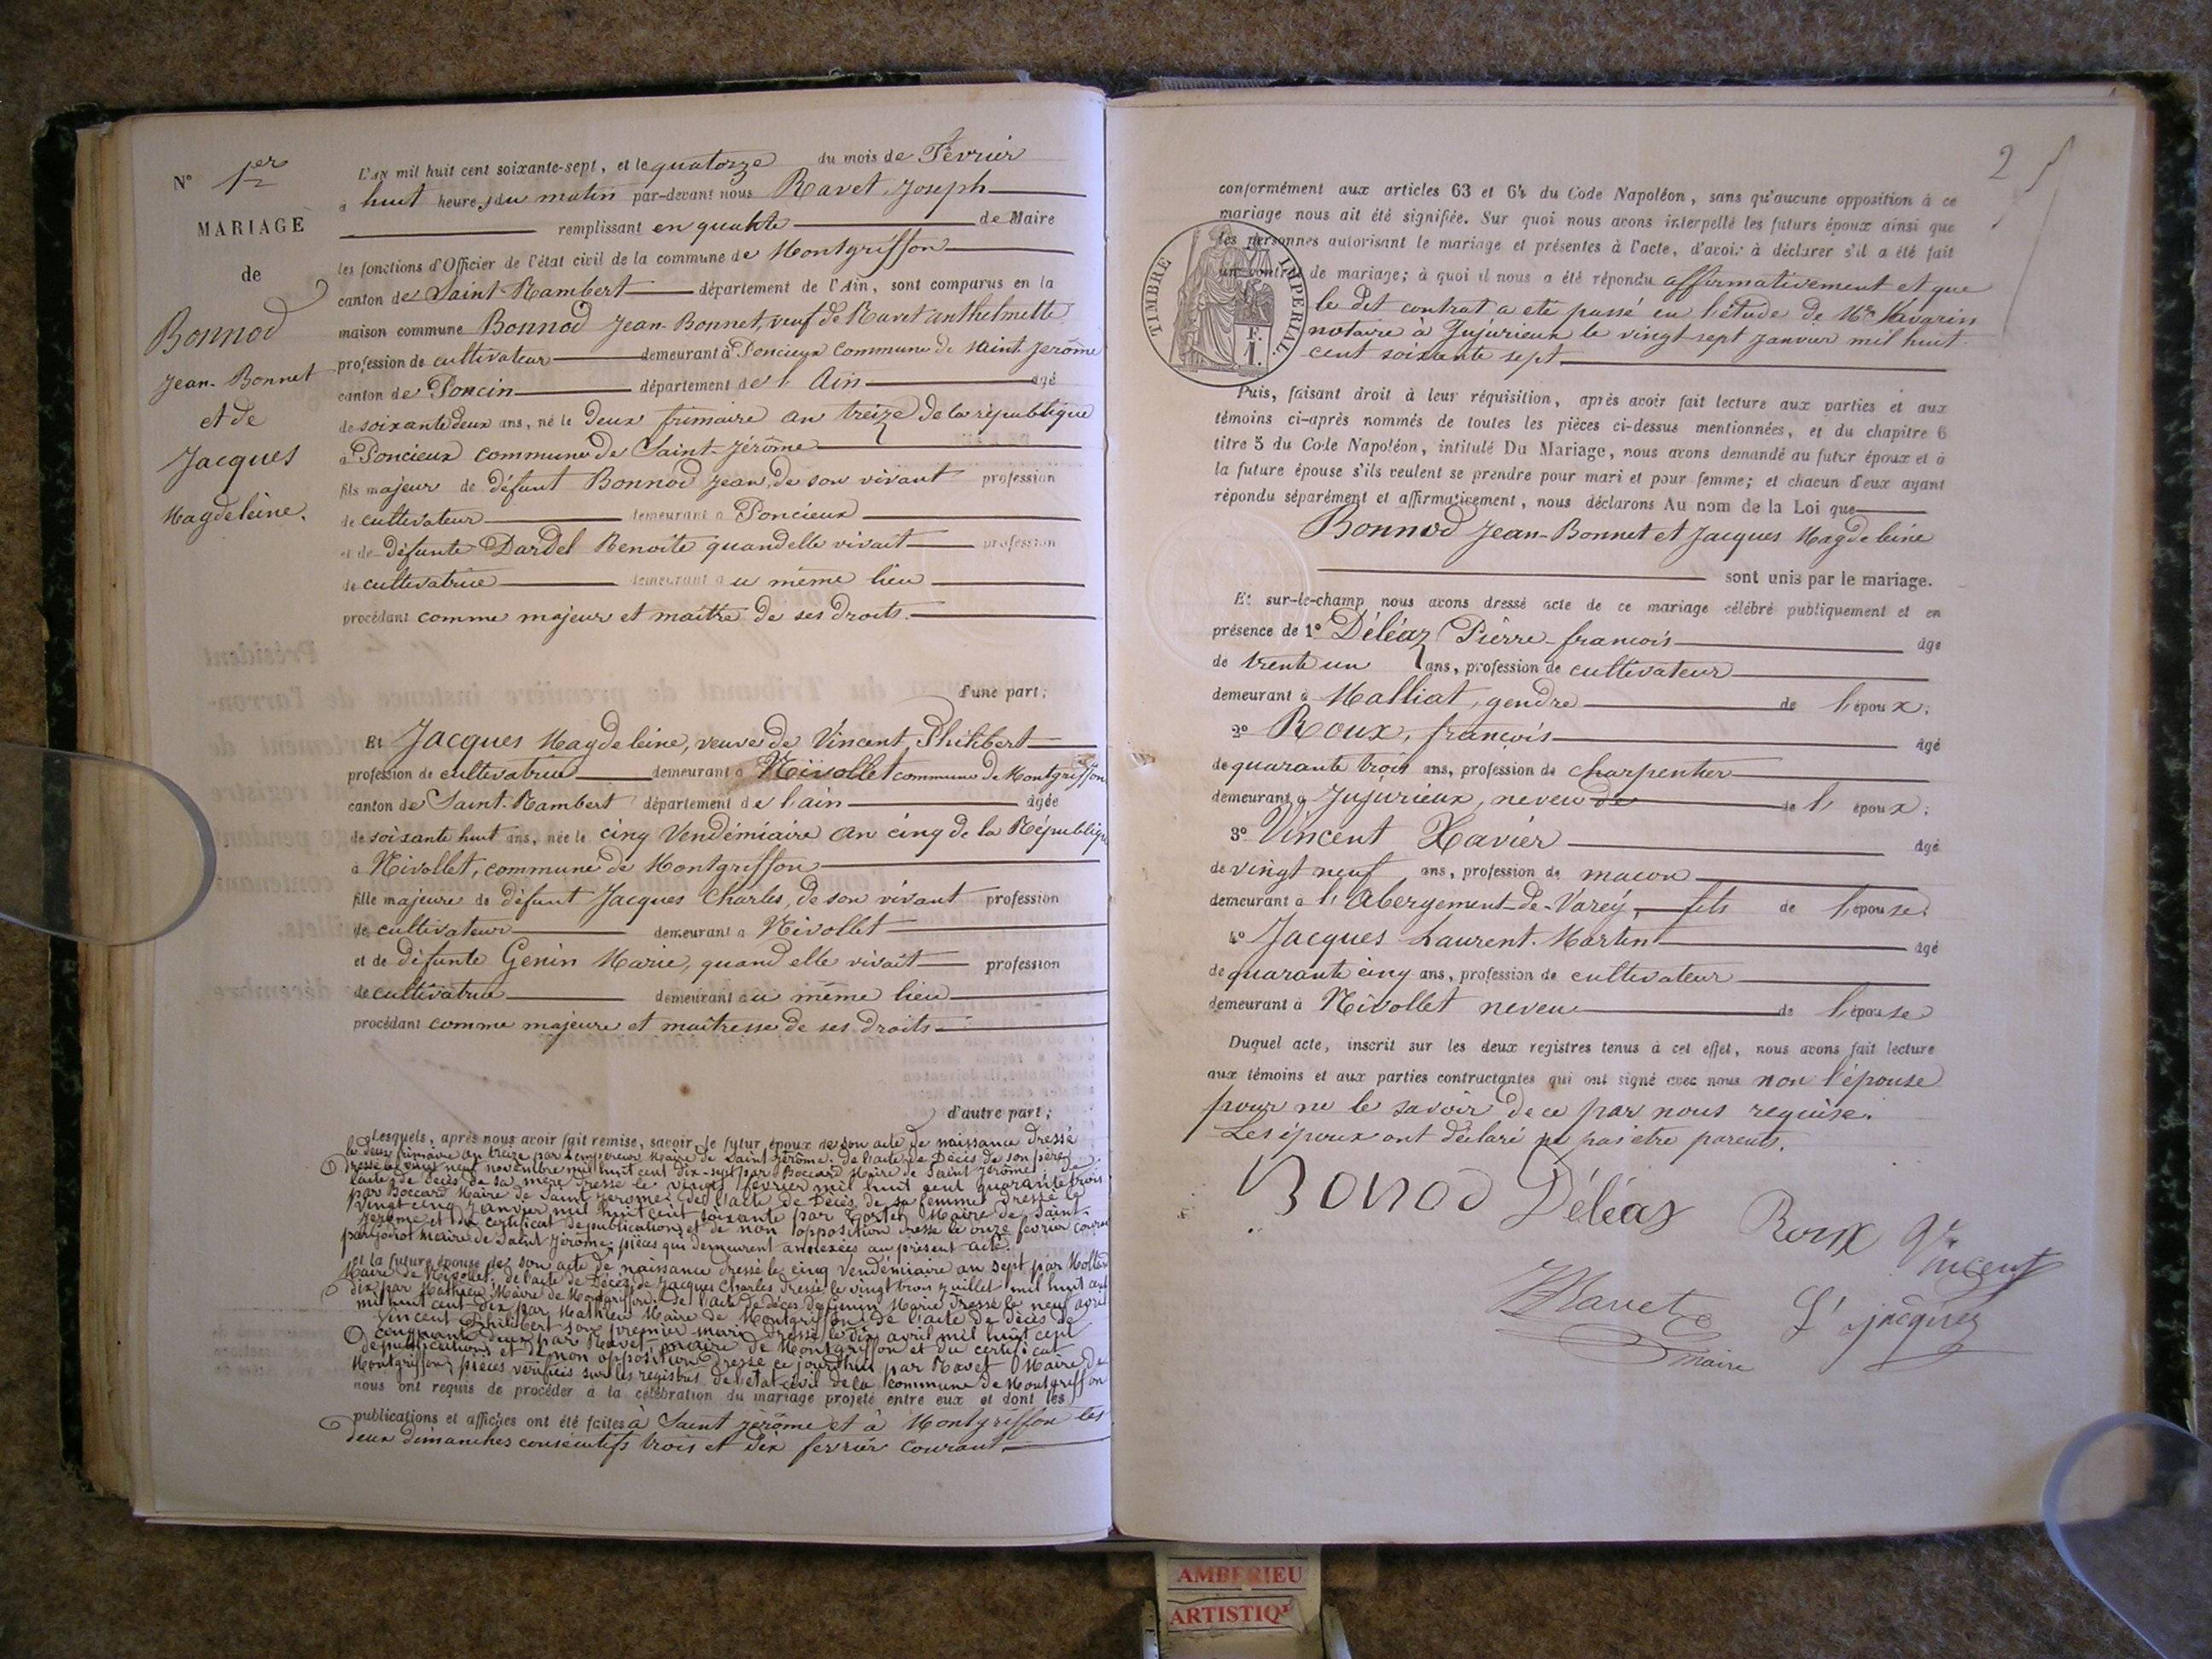 N° 1er
MARIAGE
de
Bonnod
Jean-Bonnet
et de
Jacques
Magdeleine.
L'AN mil huit cent soixante-sept, et le quatorze du mois de Février
à huit heures du matin par-devant nous Ravet, Joseph
remplissant en qualité de Maire
les fonctions d'Officier de l'état civil de la commune de Montgriffon
canton de Saint-Rambert département de l'Ain, sont comparus en la
maison commune Bonnod Jean-Bonnet, veuf de Ravet anthelmette
profession de cultivateur demeurant à Poncieux commune de saint Jerôme
canton de Poncin département de l'Ain âgé
de soixante deux ans, né le deux frimaire an treize de la république
à Poncieux commune de Saint-Jérôme
fils majeur de défunt Bonnod Jean, de son vivant profession
de cultivateur demeurant à Poncieux
et de défunte Dardel Benoite quand elle vivait profession
de cultivatrice demeurant au même lieu
procédant comme majeur et maître de ses droits.
d'une part;
Et Jacques Magdeleine, veuve de Vincent Philibert
profession de cultivatrice demeurant à Nivollet commune de Montgriffon
canton de Saint-Rambert département de l'ain âgée
de soixante huit ans, née le cinq Vendémiaire an cinq de la République
à Nivollet, commune de Montgriffon
fille majeure de défunt Jacques Charles, de son vivant profession
de cultivateur demeurant à Nivollet
et de défunte Genin Marie, quand elle vivait profession
de cultivatrice demeurant au même lieu
procédant comme majeure et maîtresse de ses droits
d'autre part;
Lesquels, après nous avoir fait remise, savoir le futur époux de son acte de naissance dressé
le deux frimaire an treize par Lempereur Maire de Saint Jérôme. de l'acte de Décès de son père
dressé le vingt neuf novembre mil huit cent dix-sept par Boccard Maire de Saint Jérôme. de
l'acte de décès de sa mère dressé le vingt février mil huit cent quarante trois
par Boccard Maire de Saint Jerome. de l'acte de Décès de sa femme dressé le
vingt cinq Janvier mil huit cent soixante par Maire de Saint-
Jerome et du certificat de publications et de non opposition dressé le onze février courant
par Maire de Saint Jérôme; pièces qui demeurent annexées au présent acte.
et la future épouse de son acte de naissance dressé le cinq Vendémiaire an sept par
Maire de Nivollet. de l'acte de Décès de Jacques Charles dressé le vingt trois Juillet mil huit cent
dix par Mathieu Maire de Montgriffon. de l'acte de décès de Genin Marie dressé le neuf avril
mil huit cent dix par Mathieu Maire de Montgriffon. de l'acte de décès de
Vincent Philibert son premier mari dressé le dix avril mil huit cent
cinquante deux par Ravet, maire de Montgriffon et du certificat
de publications et de non opposition dressé ce jourd'hui par Ravet Maire de
Montgriffon; pièces vérifiées sur les registres de l'état civil de la commune de Montgriffon
nous ont requis de procéder à la célébration du mariage projeté entre eux et dont les
publications et affiches ont été faites à Saint Jérôme et à Montgriffon les
deux dimanches consécutifs trois et dix fevrier courant
2
conformément aux articles 63 et 64 du Code Napoléon, sans qu'aucune opposition à ce
mariage nous ait été signifiée. Sur quoi nous avons interpellé les futurs époux ainsi que
les personnes autorisant le mariage et présentes à l'acte, d'avoir à déclarer s'il a été fait
un contrat de mariage; à quoi il nous a été répondu affirmativement et que
le dit contrat a été passé en l'étude de Me Savarin
notaire à Jujurieux le vingt sept janvier mil huit
cent soixante sept
TIMBRE IMPERIAL
F.
1.
Puis, faisant droit à leur réquisition, après avoir fait lecture aux parties et aux
témoins ci-après nommés de toutes les pièces ci-dessus mentionnées, et du chapitre 6
titre 5 du Code Napoléon, intitulé Du Mariage, nous avons demandé au futur époux et à
la future épouse s'ils veulent se prendre pour mari et pour femme; et chacun d'eux ayant
répondu séparément et affirmativement, nous déclarons Au nom de la Loi que
Bonnod Jean-Bonnet et Jacques Magdeleine
sont unis par le mariage.
Et sur-le-champ nous avons dressé acte de ce mariage célébré publiquement et en
présence de 1° Déléaz Pierre-francois âgé
de trente un ans, profession de cultivateur
demeurant à Malliat, gendre de l'époux.
2° Roux, françois âgé
de quarante trois ans, profession de charpentier
demeurant à Jujurieux, neveu de de l'époux;
3° Vincent Xavier âgé
de vingt neuf ans, profession de macon
demeurant à l'Abergement-de-Varey, fils de l'épouse.
4° Jacques Laurent-Martin âgé
de quarante cinq ans, profession de cultivateur
demeurant à Nivollet neveu de l'épouse
Duquel acte, inscrit sur les deux registres tenus à cet effet, nous avons fait lecture
aux témoins et aux parties contractantes qui ont signé avec nous non l'épouse
pour ne le savoir de ce par nous requise.
Les époux ont déclaré ne pas être parents.
Bonod Déléaz Roux Vincent
Ravet L. jacques
maire
AMBERIEU
ARTISTIQ